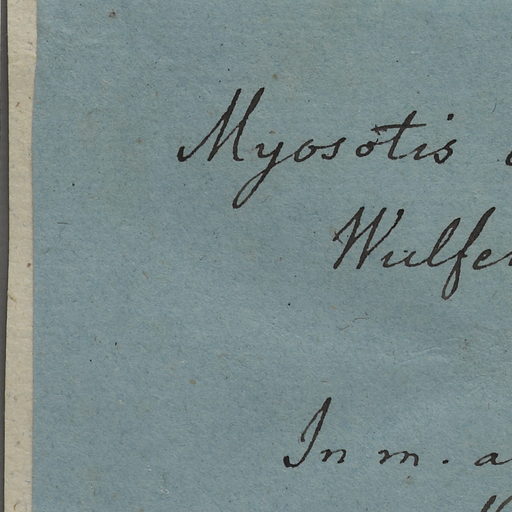 Myosotis
Wulfe
In m. a